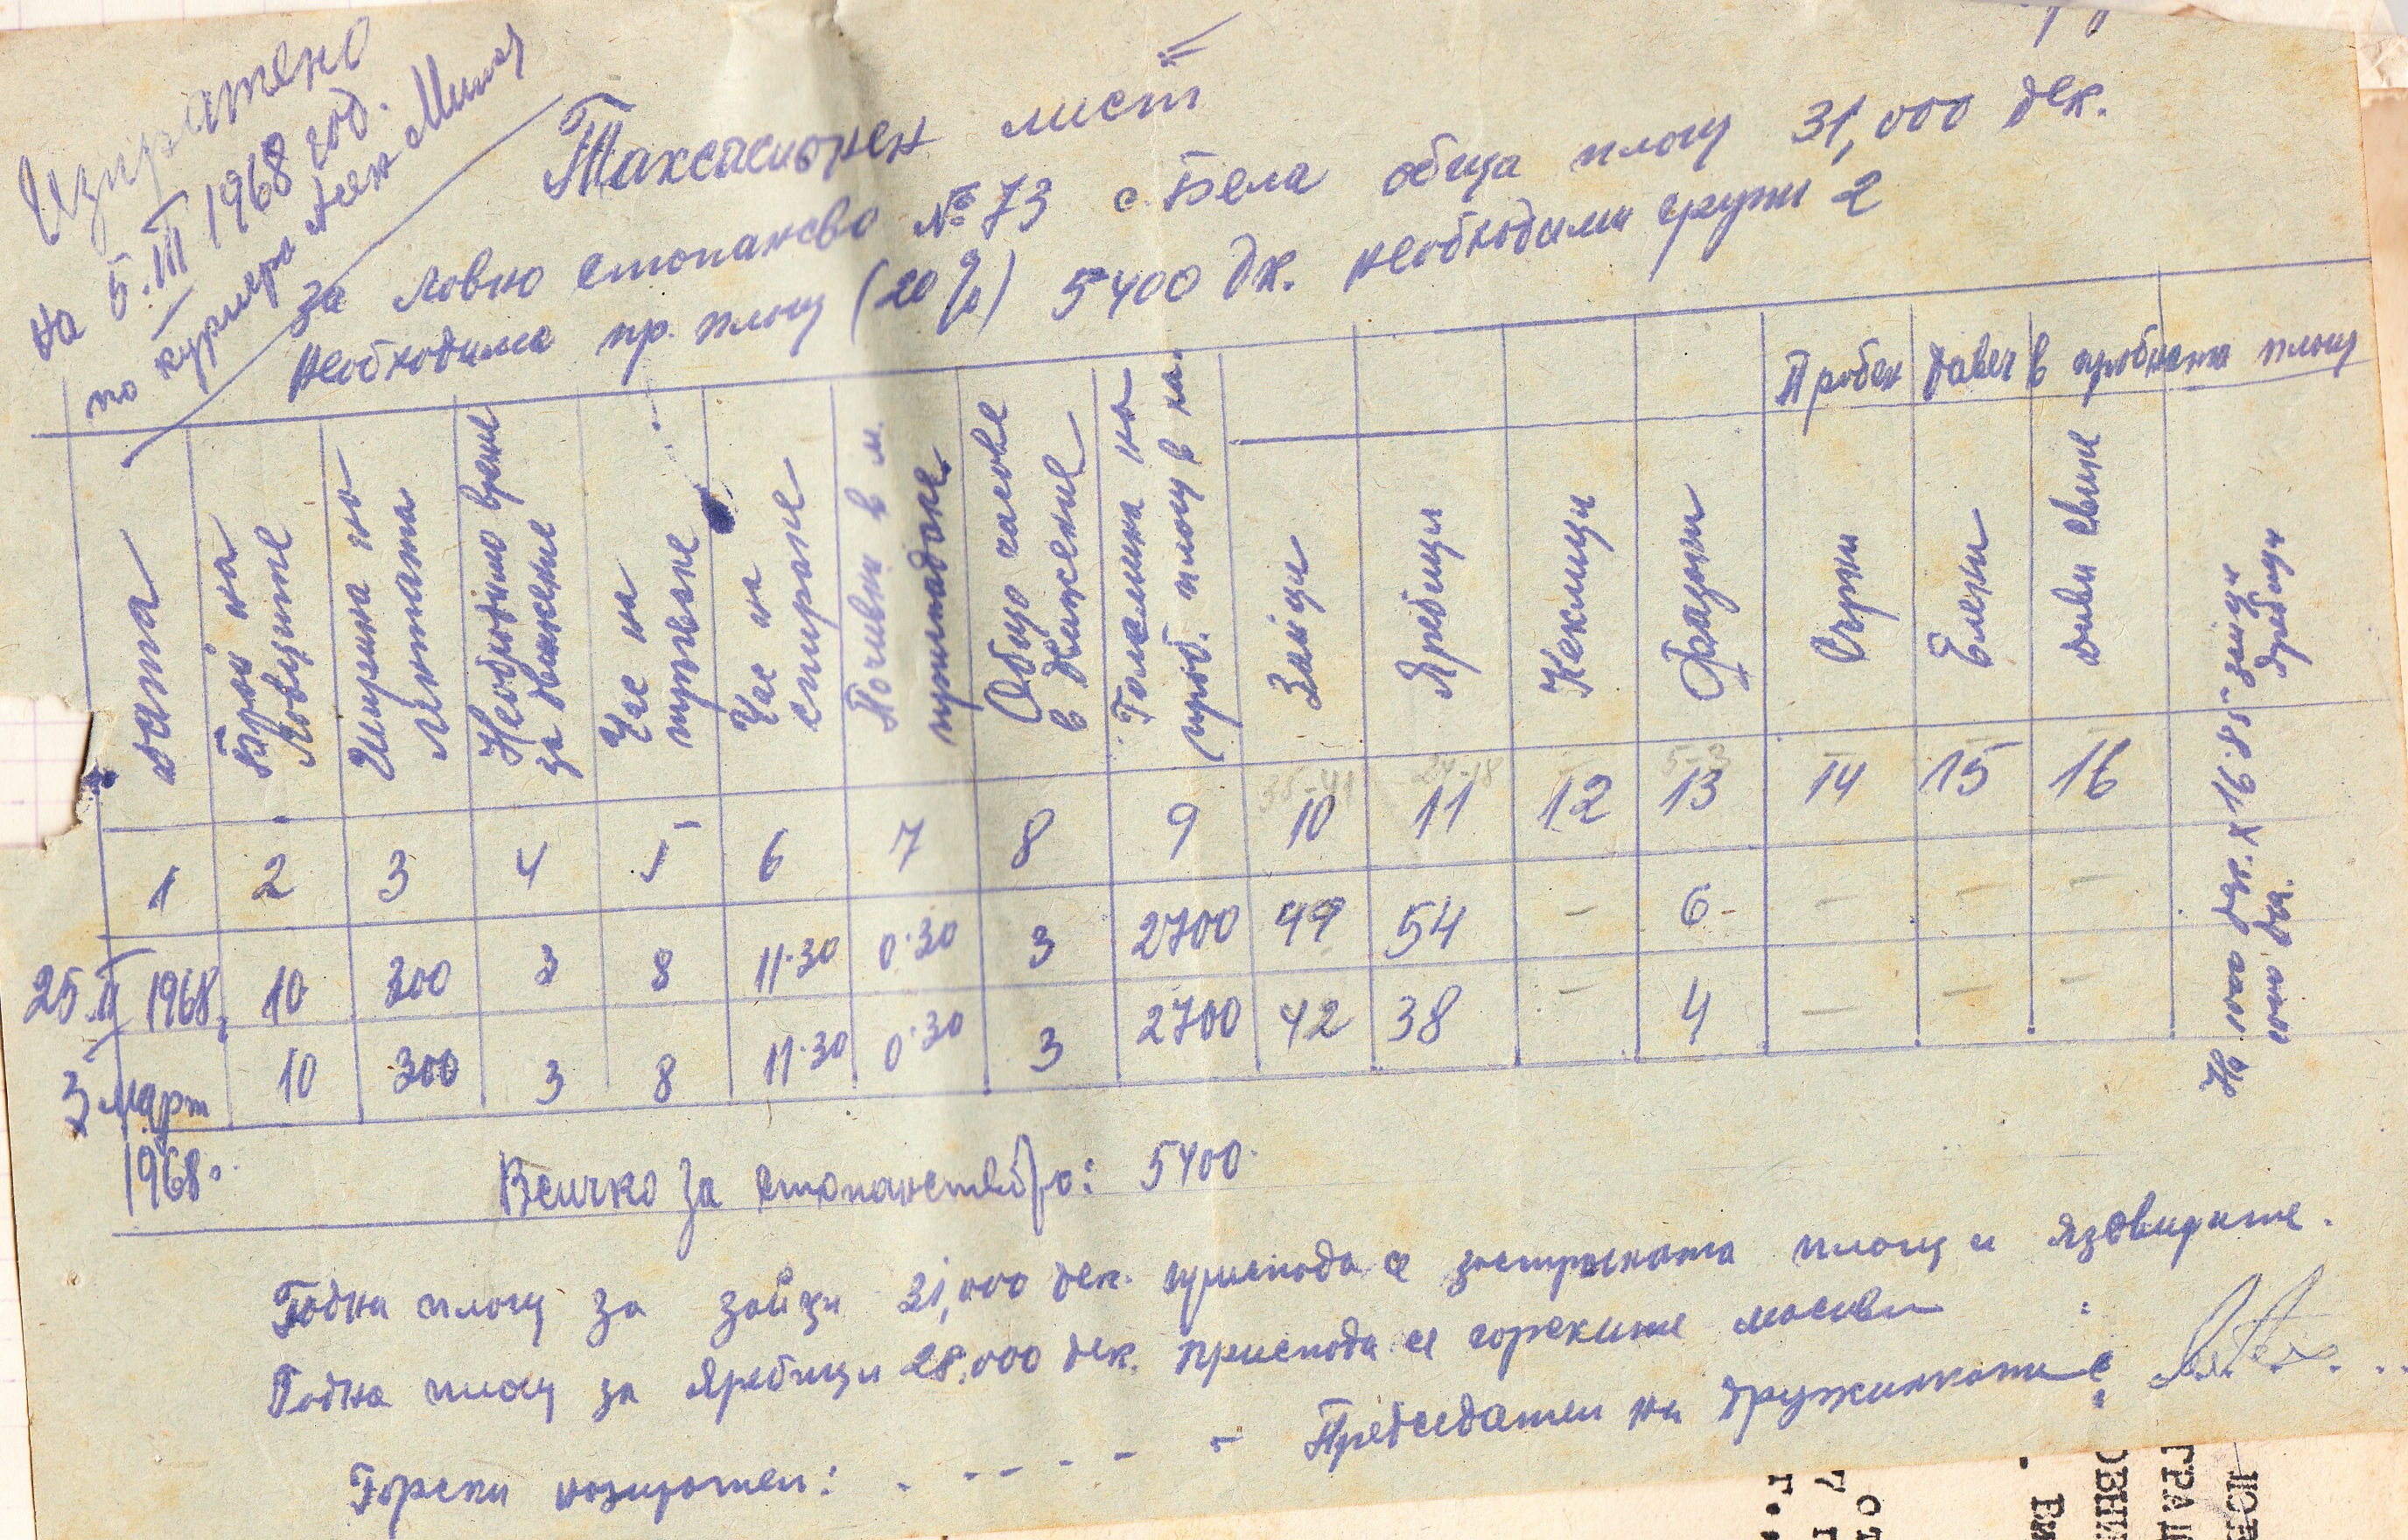 Изпратено
на 5.III 1968 год.
по куриера Асен
Таксационен лист
за ловно стопансво № 73 с. Бела обща площ 31,000 дек.
необходима пр. площ (20%) 5400 дк. необходими групи 2
Пробен в пробната площ
Дата
Брой на ловците
Ширина на
Необходимо време за движение
Час на тръгване
Час на спиране
Почивки в м.
Общо часове в движение
Големина на проб. площ в ка.
Зайци
Яребици
Кеклици
Фазани
Сърни
Елени
Диви свине
1 2 3 4 5 6 7 8 9 10 11 12 13 14 15 16
25.II 1968. 10 300 3 8 11·30 0·30 3 2700 49 54 – 6 – – –
3 март 1968. 10 300 3 8 11·30 0·30 3 2700 42 38 – 4 – – –
Всичко за стопанството: 5400.
Годна площ за зайци 31,000 дек. приспада се площ и язовирите.
Годна площ за яребици 28.000 дек. приспада се горските масиви
Председател на дружинката:
Горски надзирател: . - - - - -
На 1000 дек. х 16·85 зайци
яребици